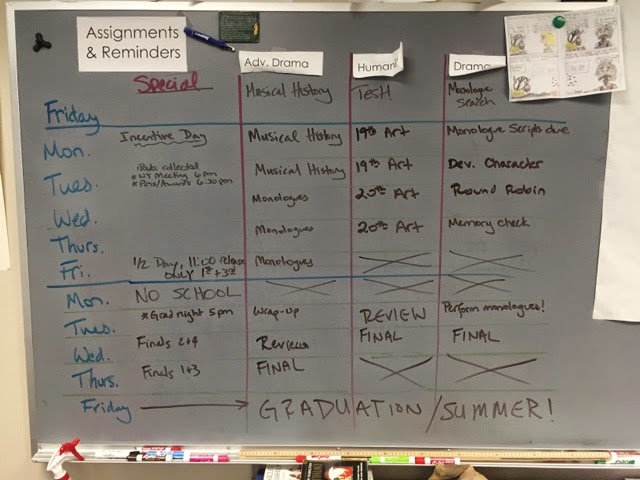 Assignments
& Reminders
Adv. Drama
Human
Drama
Special
Musical History
Test
Monologue
Search
Friday
Mon.
Incentive Day
Musical History
19th Art
Monologue Scripts due
Tues.
iPads collected
*NY Meeting 6 pm
*Pens/Awards 6:30pm
Musical History
19th Art
Dev. Character
Wed.
Monologues
20th Art
Round Robin
Thurs.
Monologues
20th Art
Memory Check
Fri.
1/2 Day, 11:00 release
only 1st + 3rd
Monologues
Mon.
NO SCHOOL
Tues.
*Grad night 5pm
Wrap-Up
REVIEW
Perform monologues!
Wed.
Finals 2+4
Review
FINAL
FINAL
Thurs.
Finals 1+3
FINAL
Friday
GRADUATION / SUMMER!